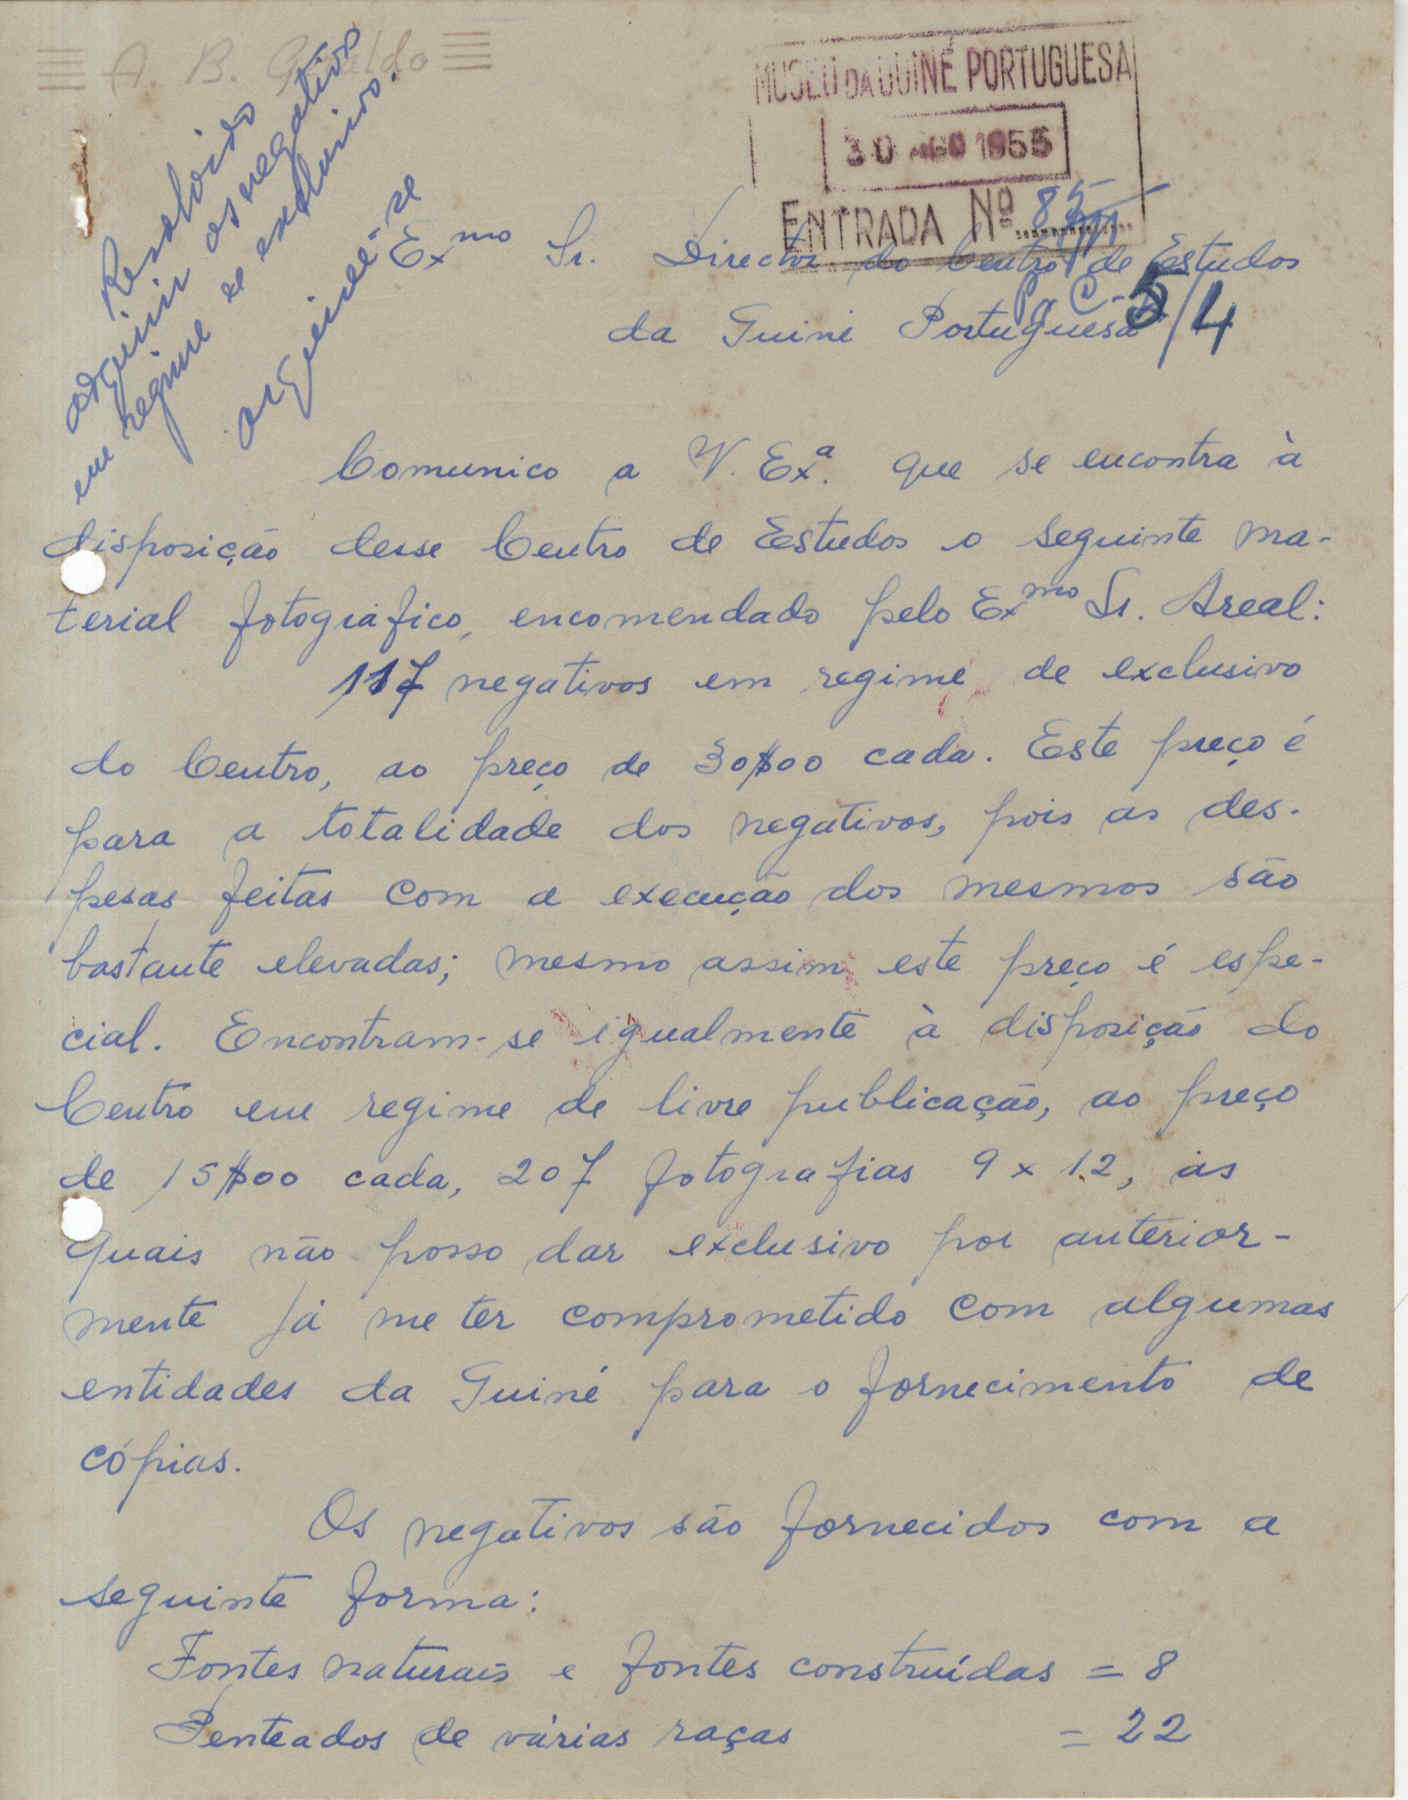 A. B. Geraldo
Resolvido
adquirir os negativos
em regime de exclusivo.
arquive-se
MUSEU DA GUINÉ PORTUGUESA
30 AGO 1955
ENTRADA Nº 85
P. C. 5/4
Exmo Sr. Director do Centro de Estudos
da Guiné Portuguesa
Comunico a V. Exª. que se encontra à
disposição desse Centro de Estudos o seguinte ma-
terial fotográfico, encomendado pelo Exmo Sr. Areal:
117 negativos em regime de exclusivo
do Centro, ao preço de 30$00 cada. Este preço é
para a totalidade dos negativos, pois as des-
pesas feitas com a execução dos mesmos são
bastante elevadas; mesmo assim este preço é espe-
cial. Encontram-se igualmente à disposição do
Centro em regime de livre publicação, ao preço
de 15$00 cada, 207 fotografias 9 x 12, as
quais não posso dar exclusivo por anterior-
mente já me ter comprometido com algumas
entidades da Guiné para o fornecimento de
cópias.
Os negativos são fornecidos com a
seguinte forma:
Fontes naturais e fontes construídas = 8
Penteados de várias raças = 22